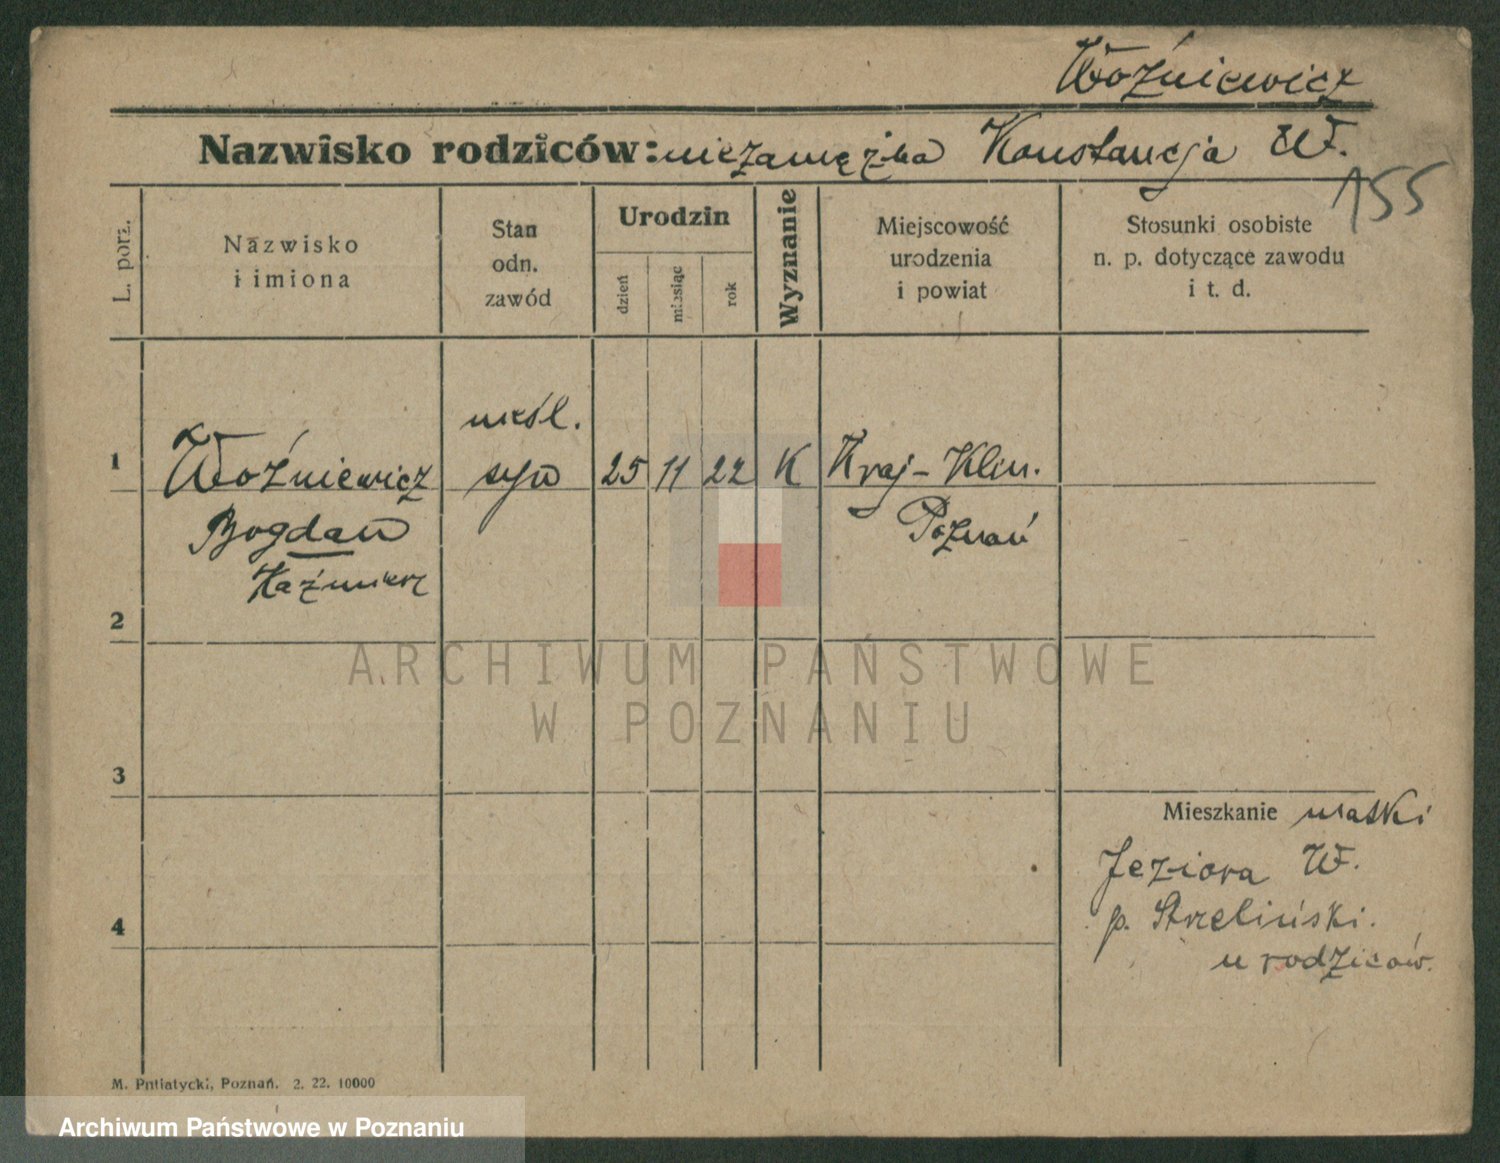 Woźniewicz
Nazwisko rodziców: niezamężna Konstancja W.
155
L. porz.
Nazwisko
i imiona
Stan
odn.
zawód
Urodzin
dzień
miesiąc
rok
Wyznanie
Miejscowość
urodzenia
i powiat
Stosunki osobiste
n. p. dotyczące zawodu
i t. d.
nieśl.
1 Woźniewicz syn 25 11 22 K Kraj-Klin.
Bogdan Poznań
Kaźmierz
2
ARCHIWUM PAŃSTWOWE
W POZNANIU
3
Mieszkanie matki
Jeziora W.
p. Strzeliński.
4
u rodziców.
M. Putiatycki, Poznań. 2. 22. 10000
Archiwum Państwowe w Poznaniu